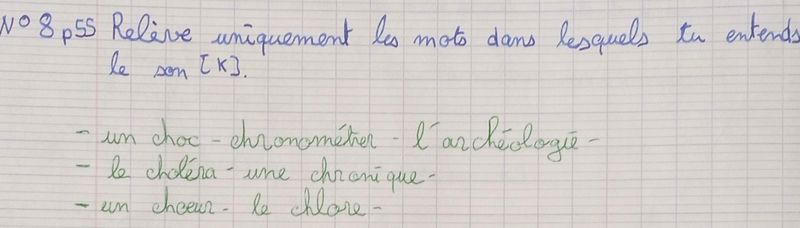 N° 8 p55 Relève uniquement les mots dans lesquels tu entends
le son [K].
- un choc - chronométrer - l'archéologie -
- le choléra - une chronique -
- un choeur - le chlore -